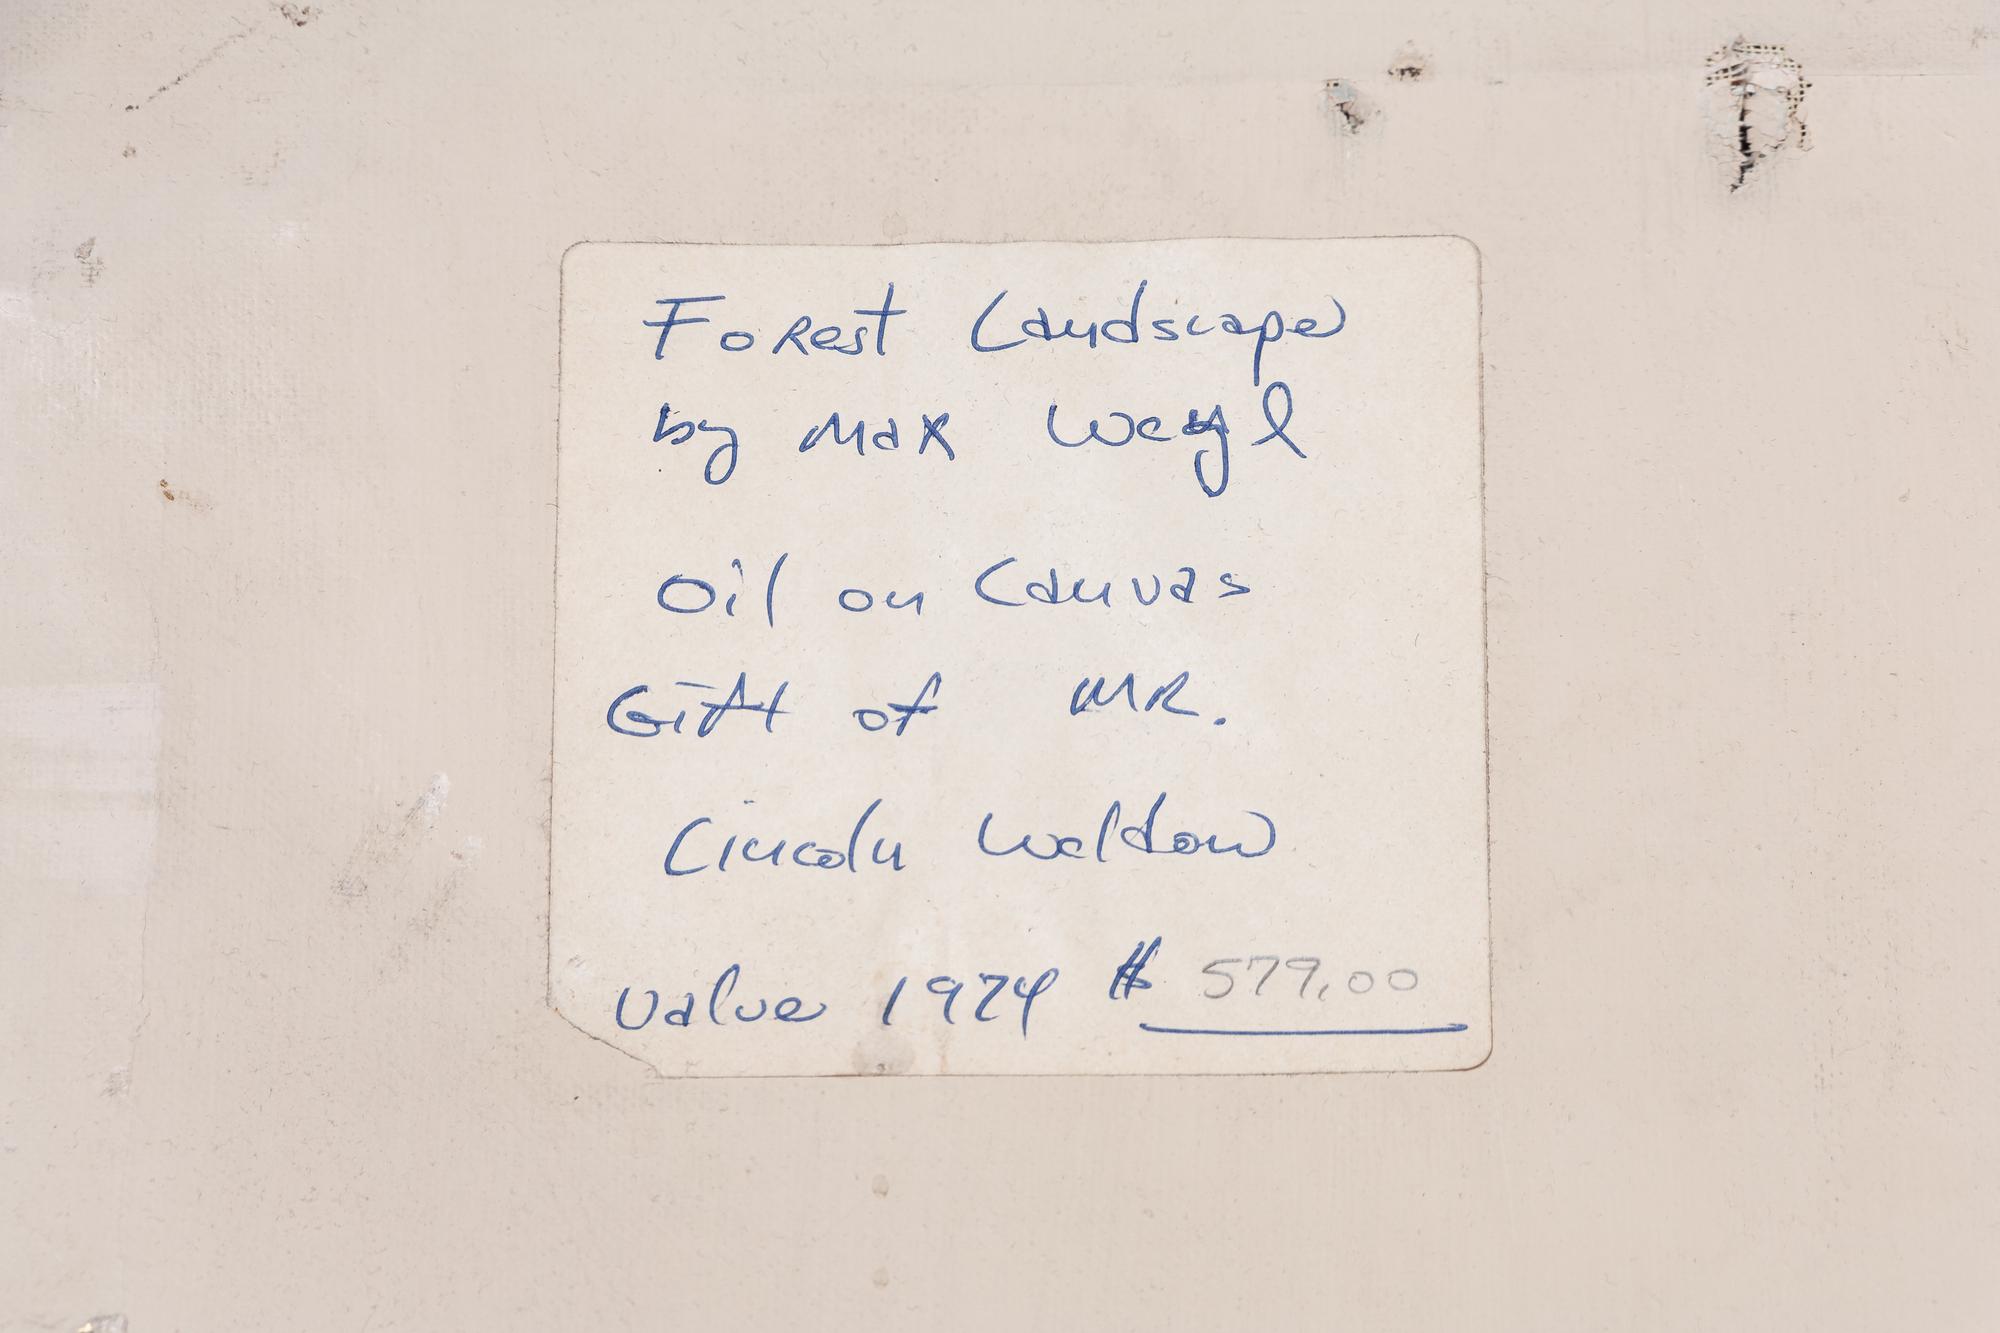 Forest Landscape
by Max Weyl
Oil on Canvas
Gift of MR.
Lincoln
Value 1974 $ 579.00